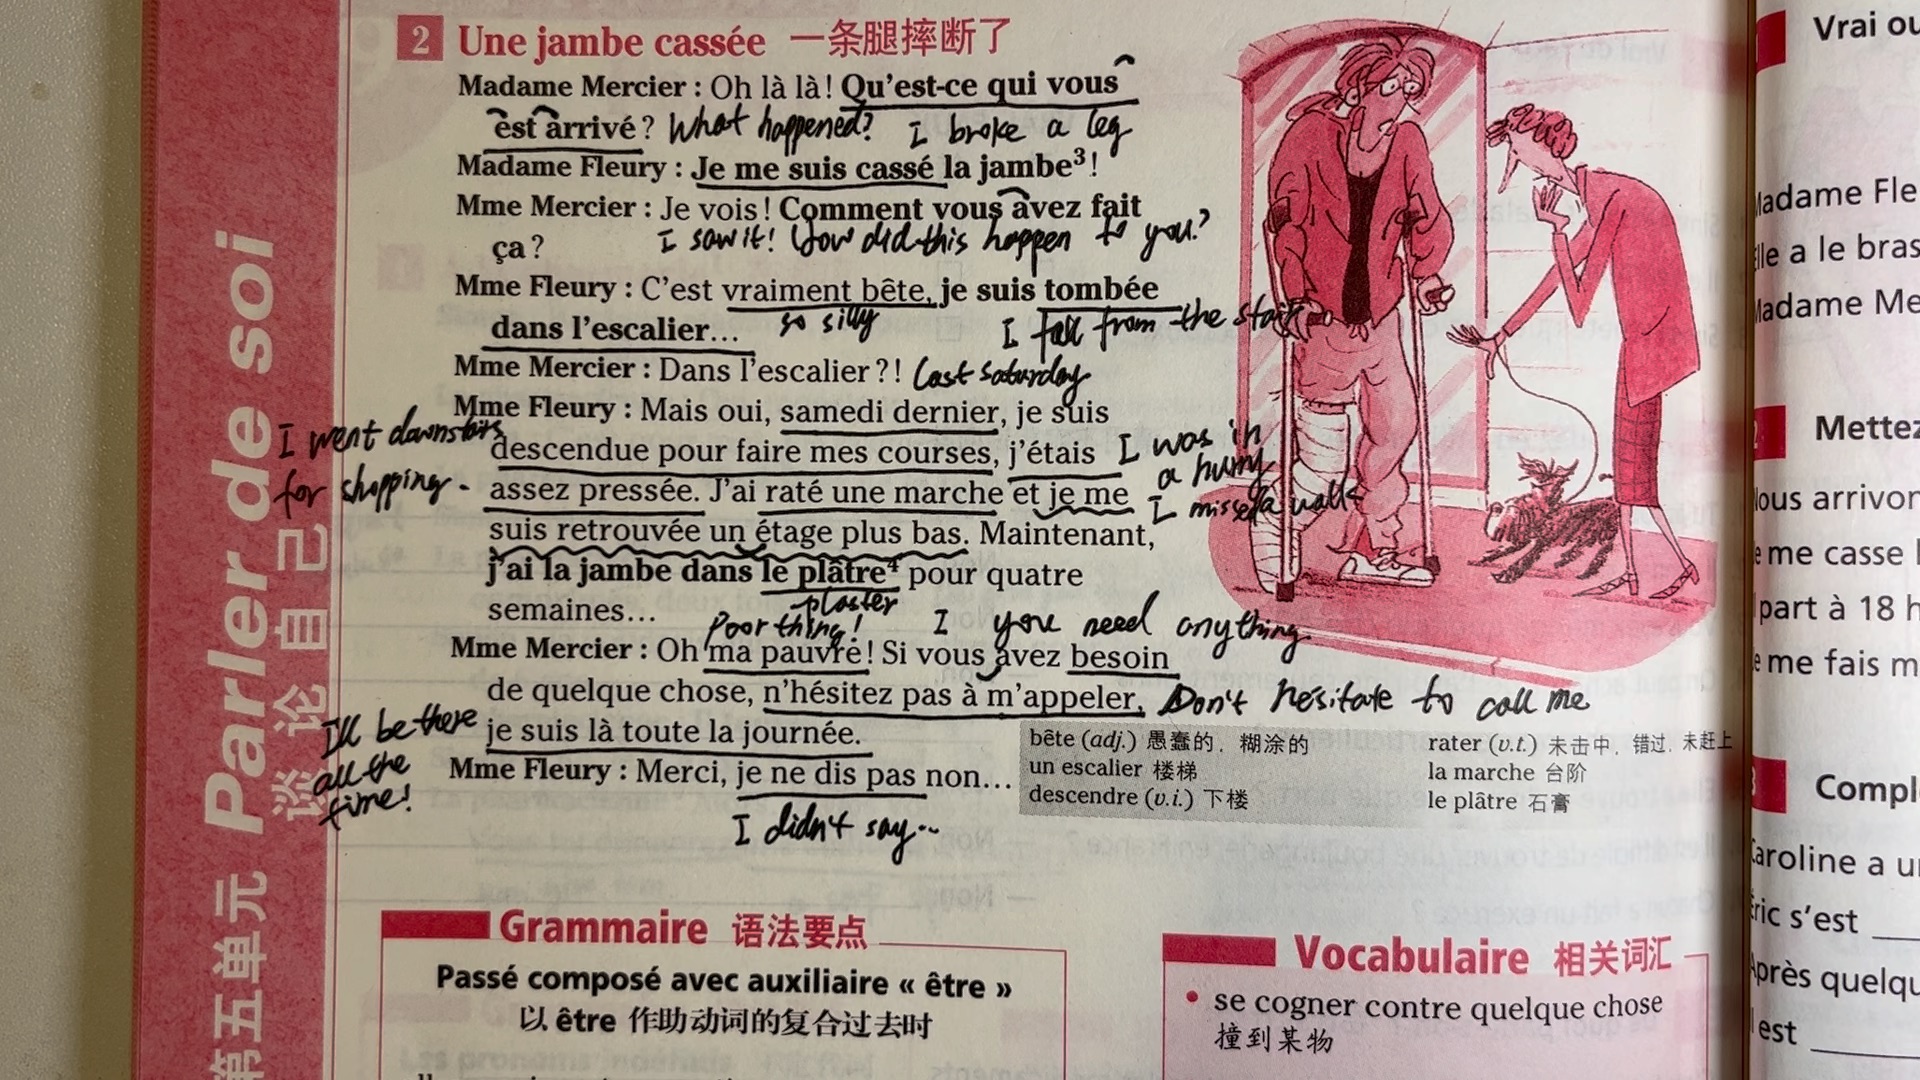 2 Une jambe cassée 一条腿摔断了
Madame Mercier : Oh là là ! Qu'est-ce qui vous
est arrivé ? What happened? I broke a leg
Madame Fleury : Je me suis cassé la jambe³ !
Mme Mercier : Je vois ! Comment vous avez fait
ça ? I saw it! How did this happen to you?
Mme Fleury : C'est vraiment bête, je suis tombée
so silly
dans l'escalier… I fall from the stair
Mme Mercier : Dans l'escalier ?! Last saturday
Mme Fleury : Mais oui, samedi dernier, je suis
I went downstairs
descendue pour faire mes courses, j'étais I was in
a hurry
for shopping.
assez pressée. J'ai raté une marche et je me I missed a walk
suis retrouvée un étage plus bas. Maintenant,
j'ai la jambe dans le plâtre⁴ pour quatre
plaster
semaines…
Poor thing! I you need anything.
Mme Mercier : Oh ma pauvre ! Si vous avez besoin
de quelque chose, n'hésitez pas à m'appeler, Don't hesitate to call me
I'll be there
all the
time!
je suis là toute la journée.
Mme Fleury : Merci, je ne dis pas non…
I didn't say..
bête (adj.) 愚蠢的，糊涂的
un escalier 楼梯
descendre (v.i.) 下楼
rater (v.t.) 未击中，错过，未赶上
la marche 台阶
le plâtre 石膏
Grammaire 语法要点
Passé composé avec auxiliaire « être »
以 être 作助动词的复合过去时
Vocabulaire 相关词汇
• se cogner contre quelque chose
撞到某物
第五单元 Parler de soi
谈论自己
Vrai ou
Madame Fle
Elle a le bras
Madame Me
Mettez
Nous arrivon
Je me casse
part à 18 h
Je me fais m
3 Compl
Caroline a un
Éric s'est
Après quelqu
est